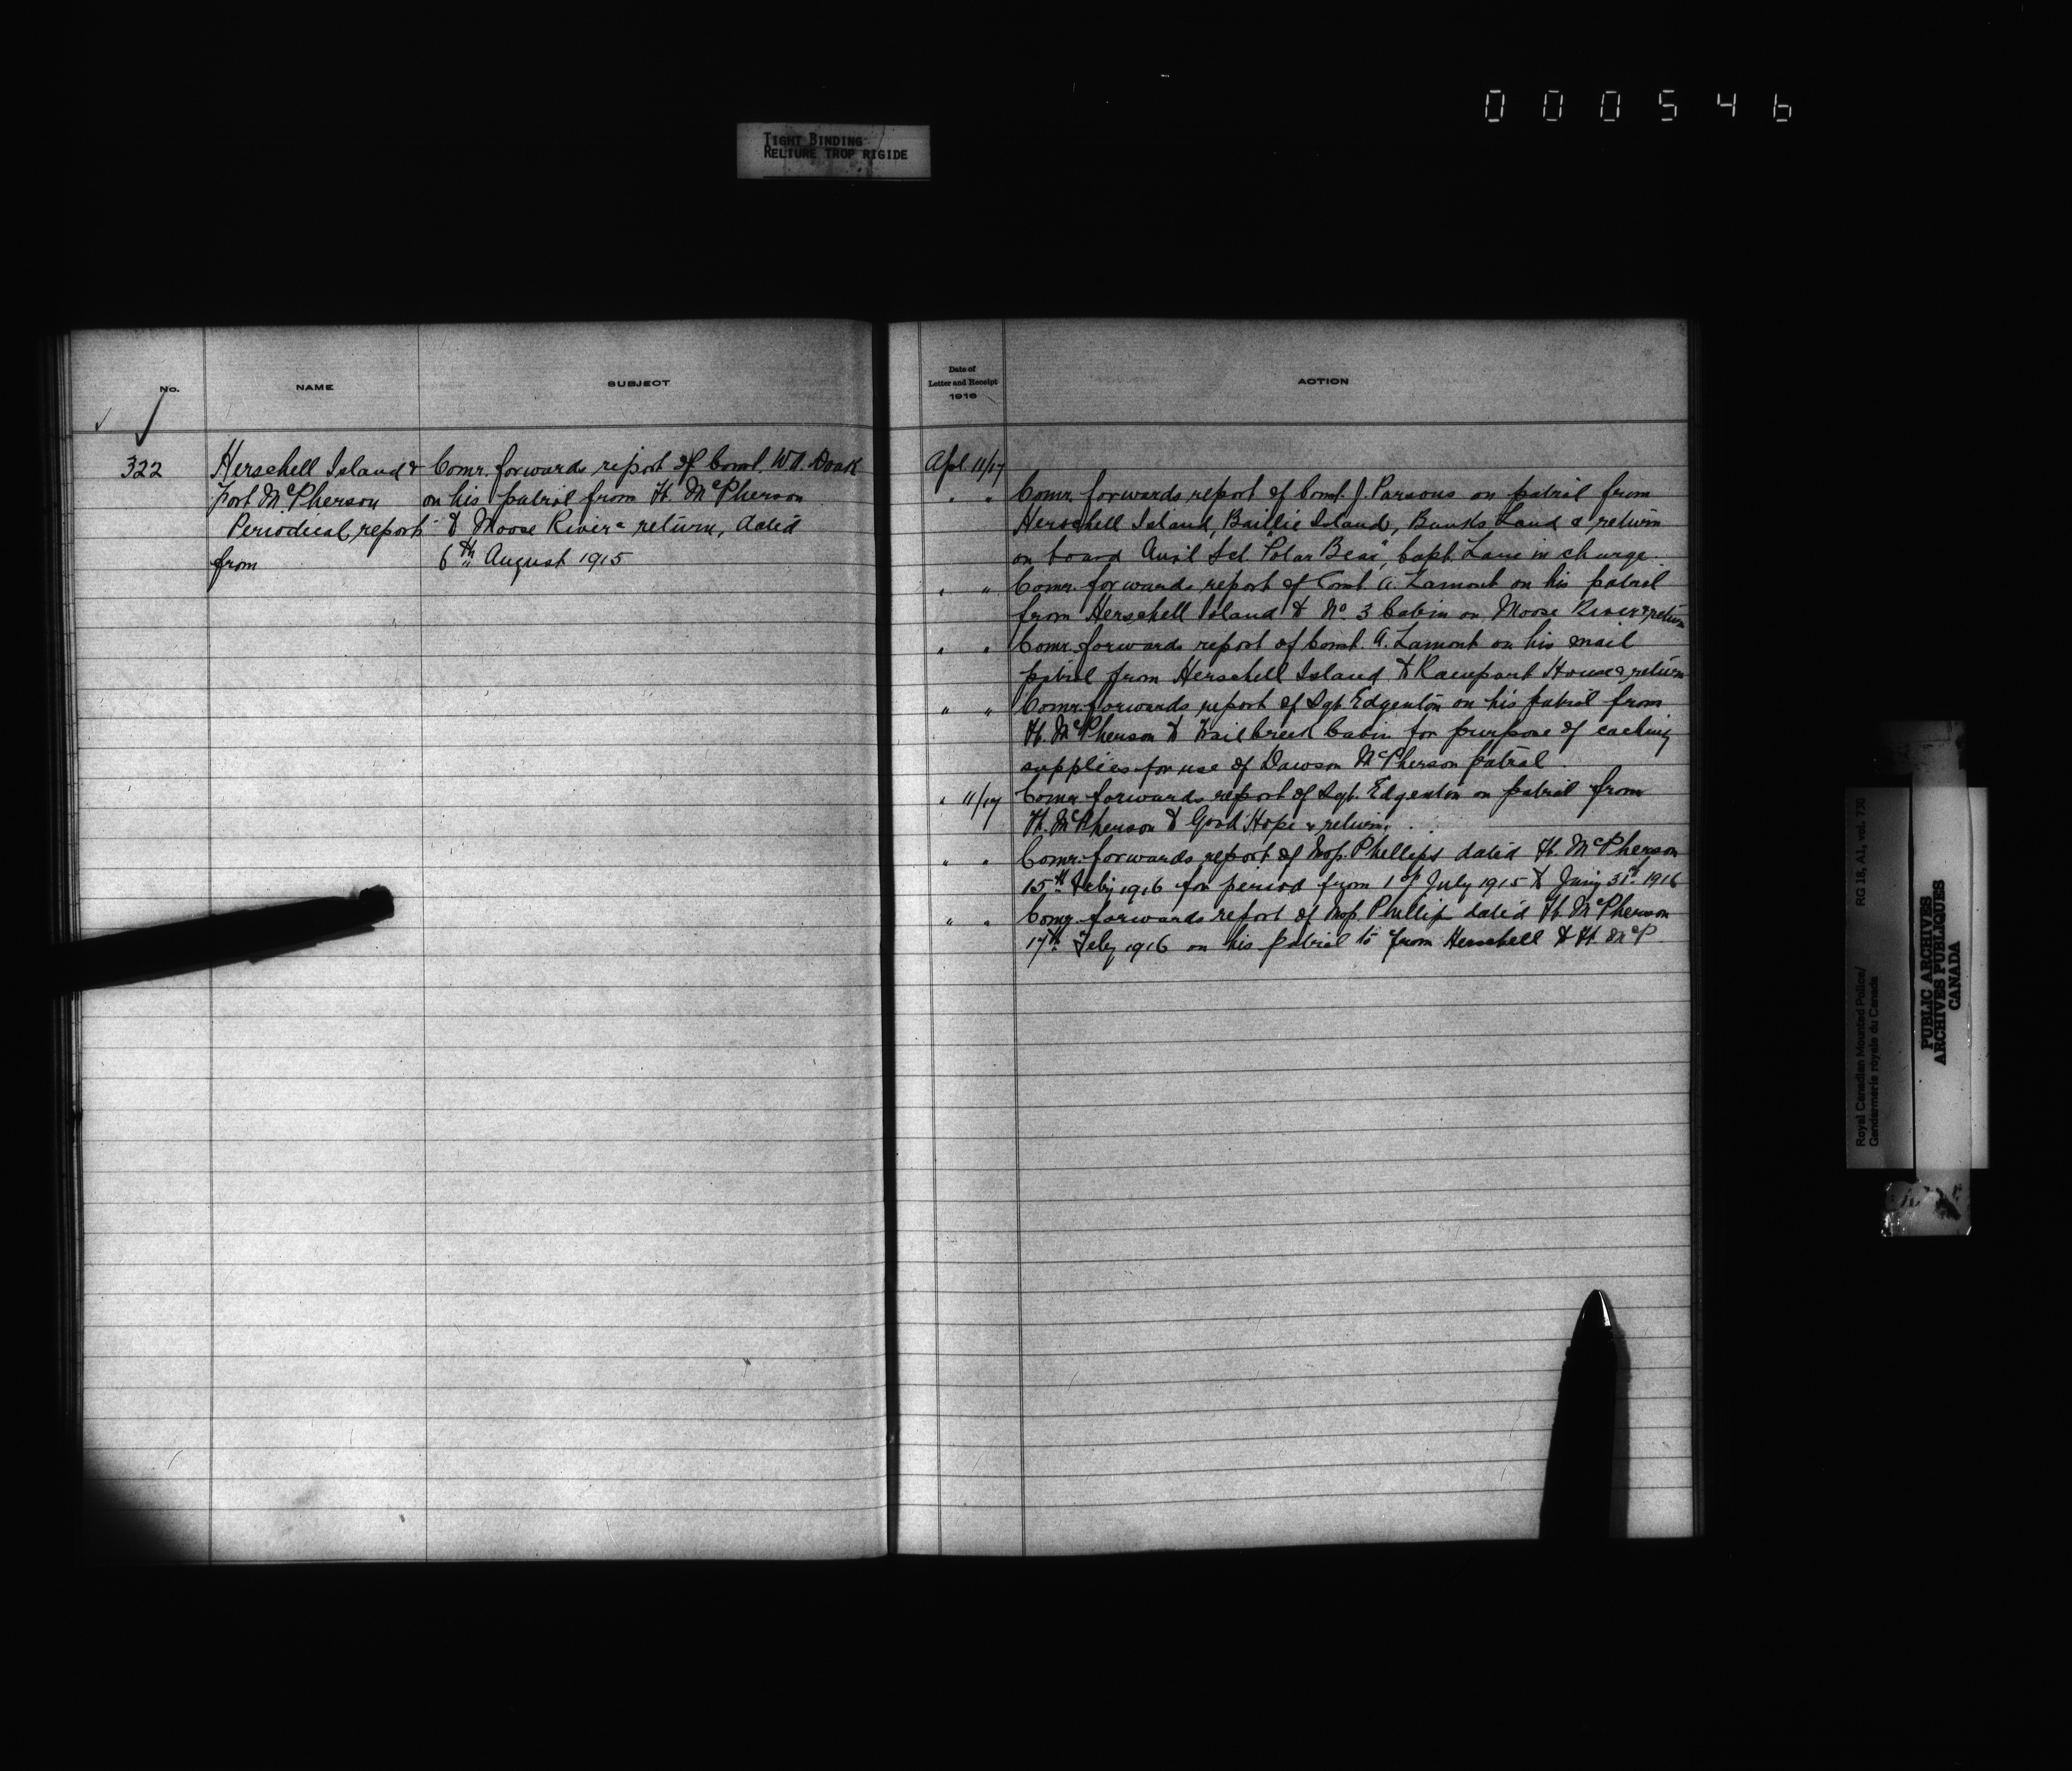 000546
TIGHT BINDING
RELIURE TROP RIGIDE
No.
NAME
SUBJECT
322
Herschell Island &
Fort McPherson
Periodical report
from
Comr. forwards report of Const. W.A. Doak
on his patrol from Ft. McPherson
to Moose River & return, dated
6th August 1915
Date of
Letter and Receipt
1916
ACTION
Apl. 11/17
" " Comr. forwards report of Const. J. Parsons on patrol from
Herschell Island, Baillie Island, Banks Land & return
on board Auxl Sch. "Polar Bear", Capt. Lane in charge.
" " Comr. forwards report of Const. A. Lamont on his patrol
from Herschell Island to No. 3 Cabin on Moose River & return
" " Comr. forwards report of Const. A. Lamont on his mail
patrol from Herschell Island to Rampart House & return
" " Comr. forwards report of Sgt. Edgenton on his patrol from
Ft. McPherson to Trail Creek Cabin for purpose of caching
supplies for use of Dawson McPherson patrol.
" 11/17 Comr. forwards report of Sgt. Edgenton on patrol from
Ft. McPherson to Good Hope & return.
" " Comr. forwards report of Insp. Phillips dated Ft. McPherson
15th Feby 1916 for period from 1st July 1915 to Jany 31st 1916
" " Comr. forwards report of Insp. Phillip dated Ft. McPherson
17th Feby 1916 on his patrol to & from Herschell to Ft. McP
Royal Canadian Mounted Police/
Gendarmerie royale du Canada
RG 18, A1, vol. 730
PUBLIC ARCHIVES
ARCHIVES PUBLIQUES
CANADA